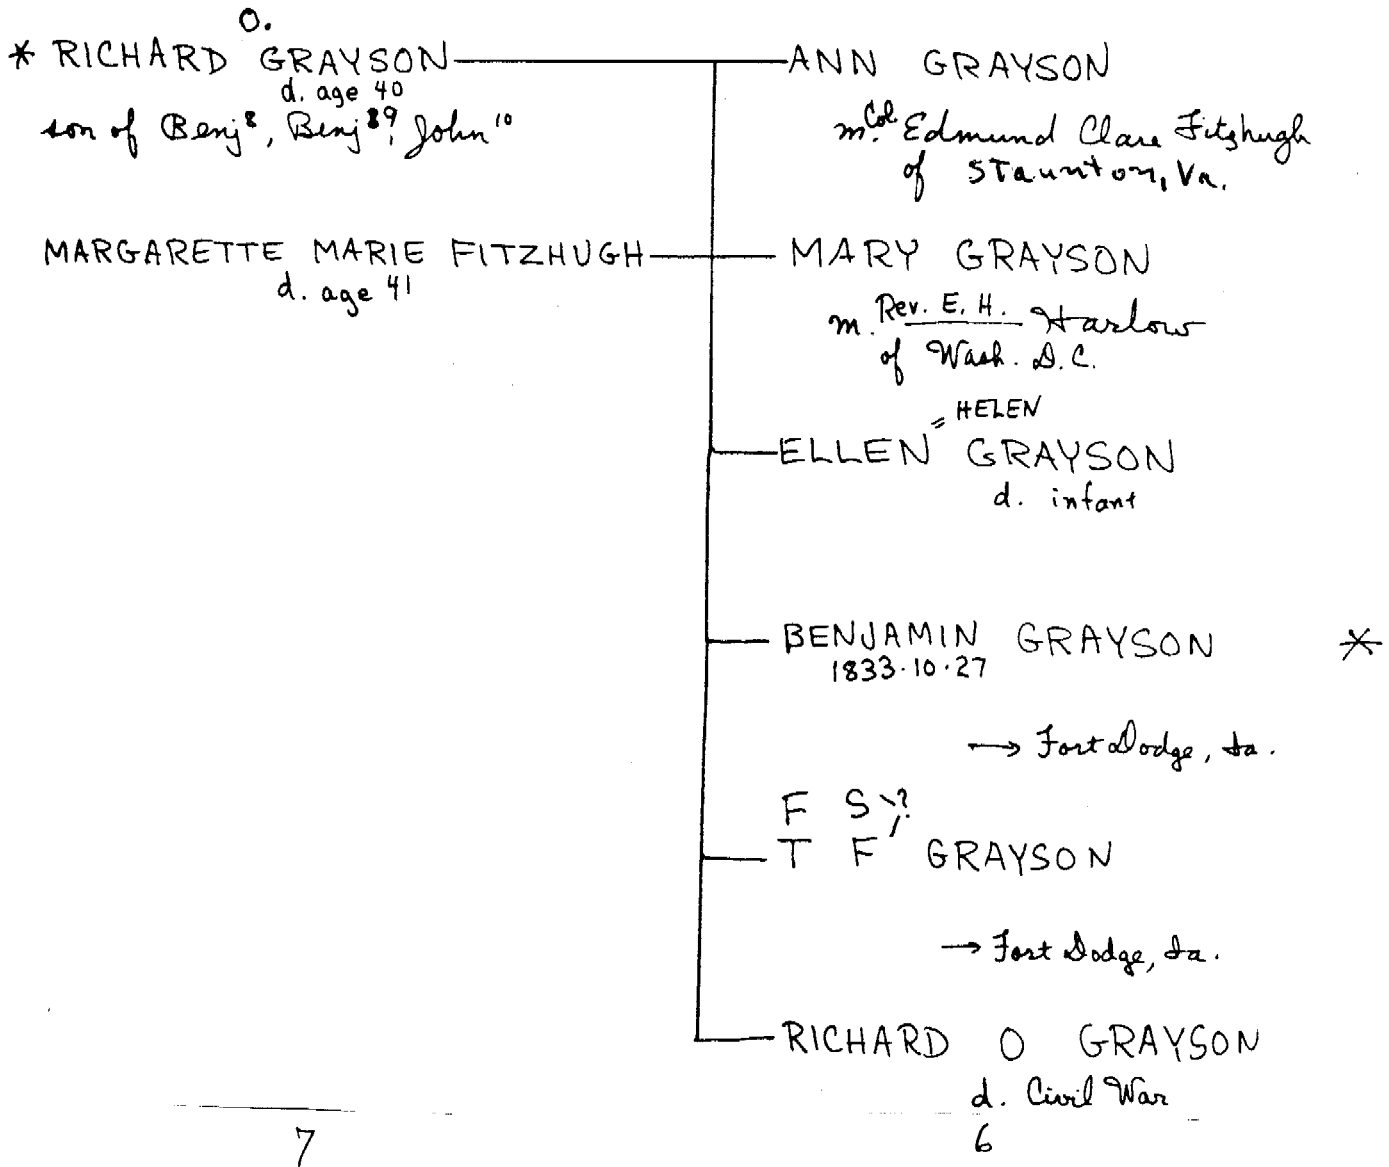 * RICHARD O. GRAYSON
d. age 40
son of Benj⁸, Benj⁹, John¹⁰
MARGARETTE MARIE FITZHUGH
d. age 41
ANN GRAYSON
m. Col. Edmund Clare Fitzhugh
of Staunton, Va.
MARY GRAYSON
m. Rev. E. H. Harlow
of Wash. D.C.
= HELEN
ELLEN GRAYSON
d. infant
BENJAMIN GRAYSON *
1833·10·27
→ Fort Dodge, Ia.
F S ?
T F GRAYSON
→ Fort Dodge, Ia.
RICHARD O GRAYSON
d. Civil War
7
6